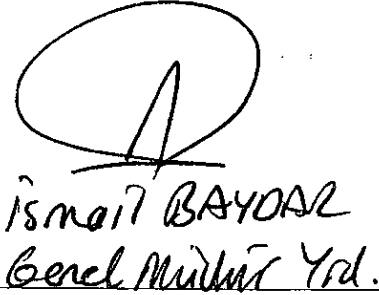 İsmail BAYDAR
Genel Müdür Yrd.